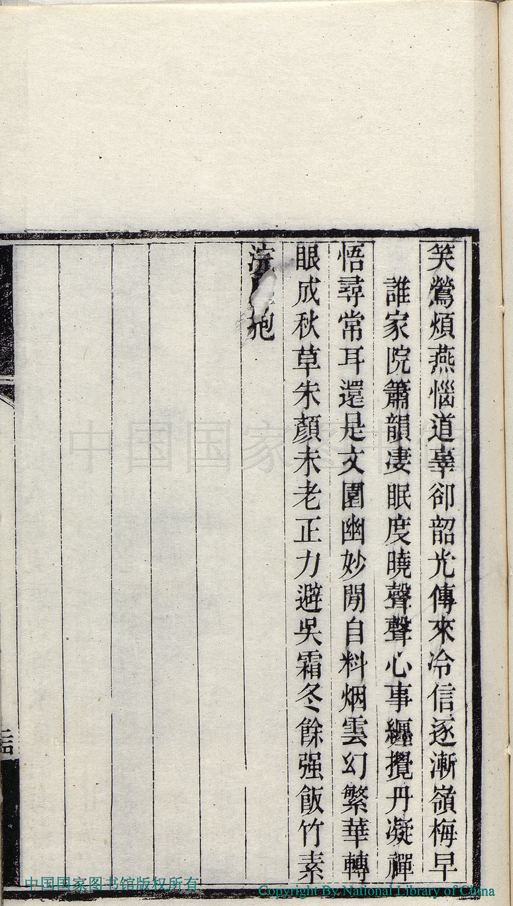 笑鶯煩燕惱道辜卻韶光傳來冷信逐漸嶺梅早
誰家院簫韻凄眠度曉聲聲心事纏攪丹凝禪
悟尋常耳還是文園幽妙閒自料烟雲幻繁華轉
眼成秋草朱顏未老正力避吳霜冬餘强飯竹素
浣 抱
中国国家图
中国国家图书馆版权所有
Copyright By National Library of China